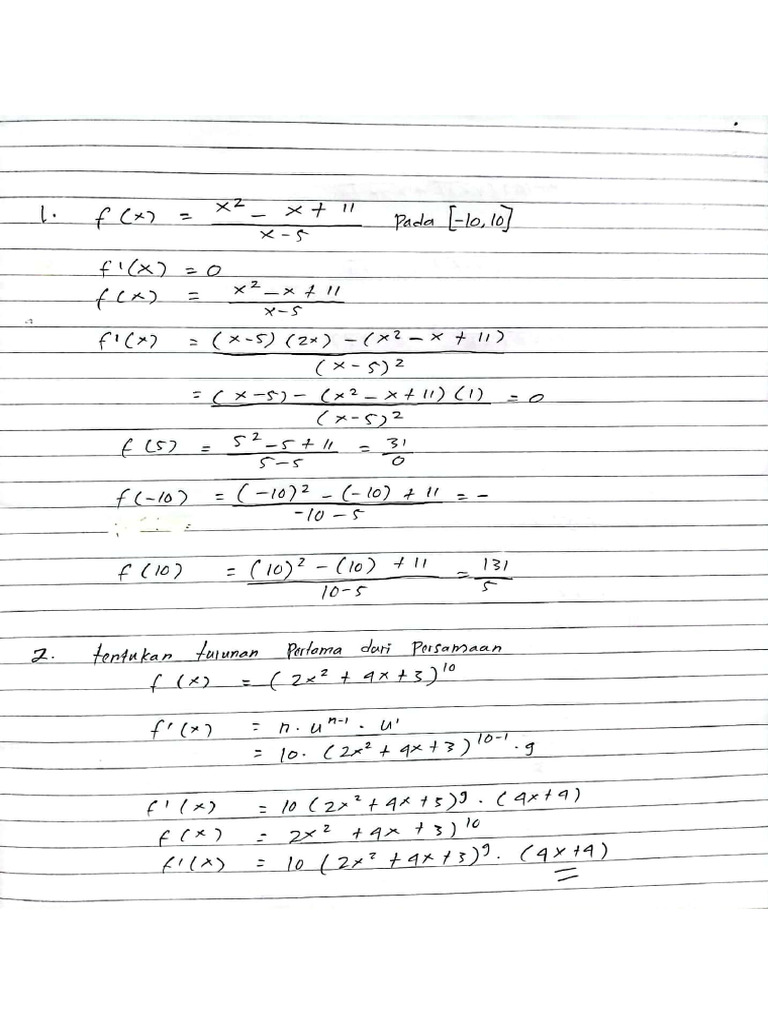 1. f(x) = (x² - x + 11)/(x-5) pada [-10,10]
f'(x) = 0
f(x) = (x² - x + 11)/(x-5)
f'(x) = ((x-5)(2x) - (x² - x + 11))/(x-5)²
= ((x-5) - (x² - x + 11)(1))/(x-5)² = 0
f(5) = (5² - 5 + 11)/(5-5) = 31/0
f(-10) = ((-10)² - (-10) + 11)/(-10-5) = -
f(10) = ((10)² - (10) + 11)/(10-5) = 131/5
2. tentukan turunan Pertama dari Persamaan
f(x) = (2x² + 4x + 3)¹⁰
f'(x) = n · uⁿ⁻¹ · u'
= 10 · (2x² + 4x + 3)¹⁰⁻¹ · g
f'(x) = 10 (2x² + 4x + 5)⁹ · (4x+4)
f(x) = 2x² + 4x + 3)¹⁰
f'(x) = 10 (2x² + 4x + 3)⁹ · (4x+4)